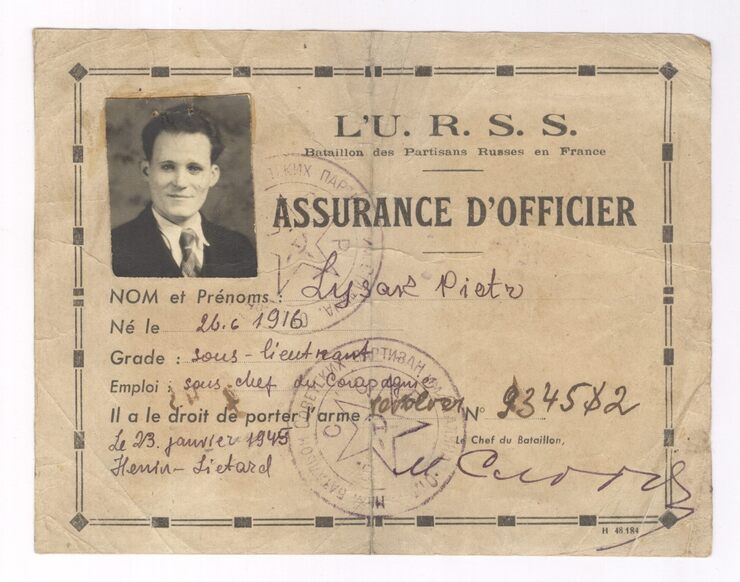 L'U. R. S. S.
Bataillon des Partisans Russes en France
ASSURANCE D'OFFICIER
NOM et Prénoms : Lysak Pietr
Né le 26.6 1916
Grade : sous-lieutenant
Emploi : sous chef du Compagnie
Il a le droit de porter l'arme : revolver N° 934582
Le 23. janvier 1945
Le Chef du Bataillon,
Henin-Lietard
H 48184